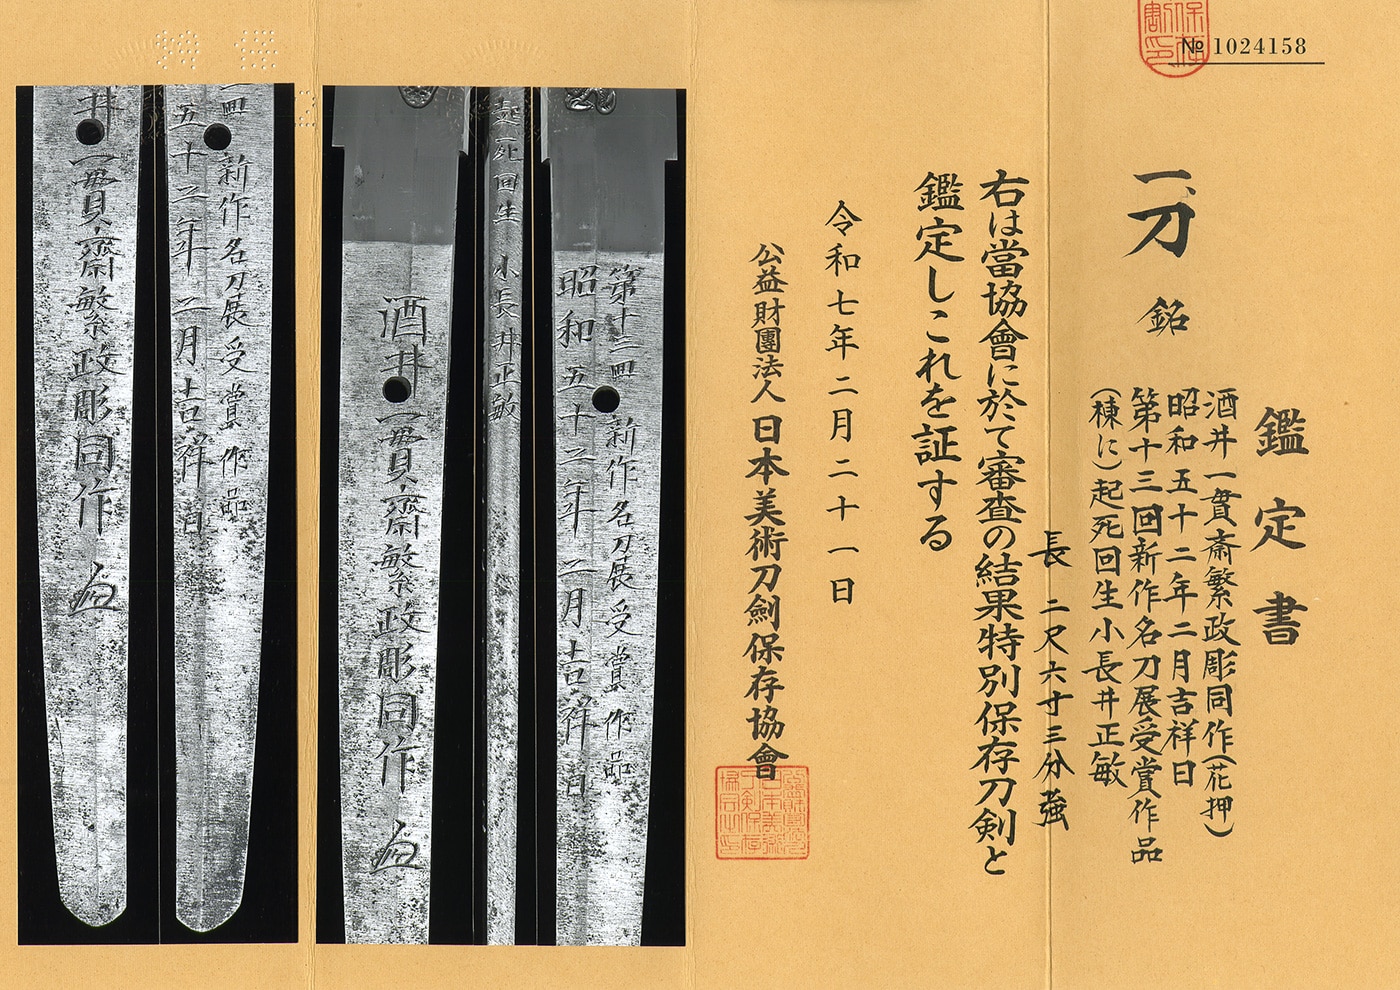 № 1024158
鑑定書
一、刀 銘
酒井一貫斎繁政彫同作(花押)
昭和五十二年二月吉祥日
第十三回新作名刀展受賞作品
(棟に)起死回生小長井正敏
長 二尺六寸三分強
右は當協會に於て審査の結果特別保存刀剣と
鑑定しこれを証する
令和七年二月二十一日
公益財團法人 日本美術刀劍保存協會
第十三回新作名刀展受賞作品
昭和五十二年二月吉祥日
起死回生小長井正敏
酒井一貫齋繁政彫同作
回新作名刀展受賞作品
五十二年二月吉祥日
井一貫齋繁政彫同作